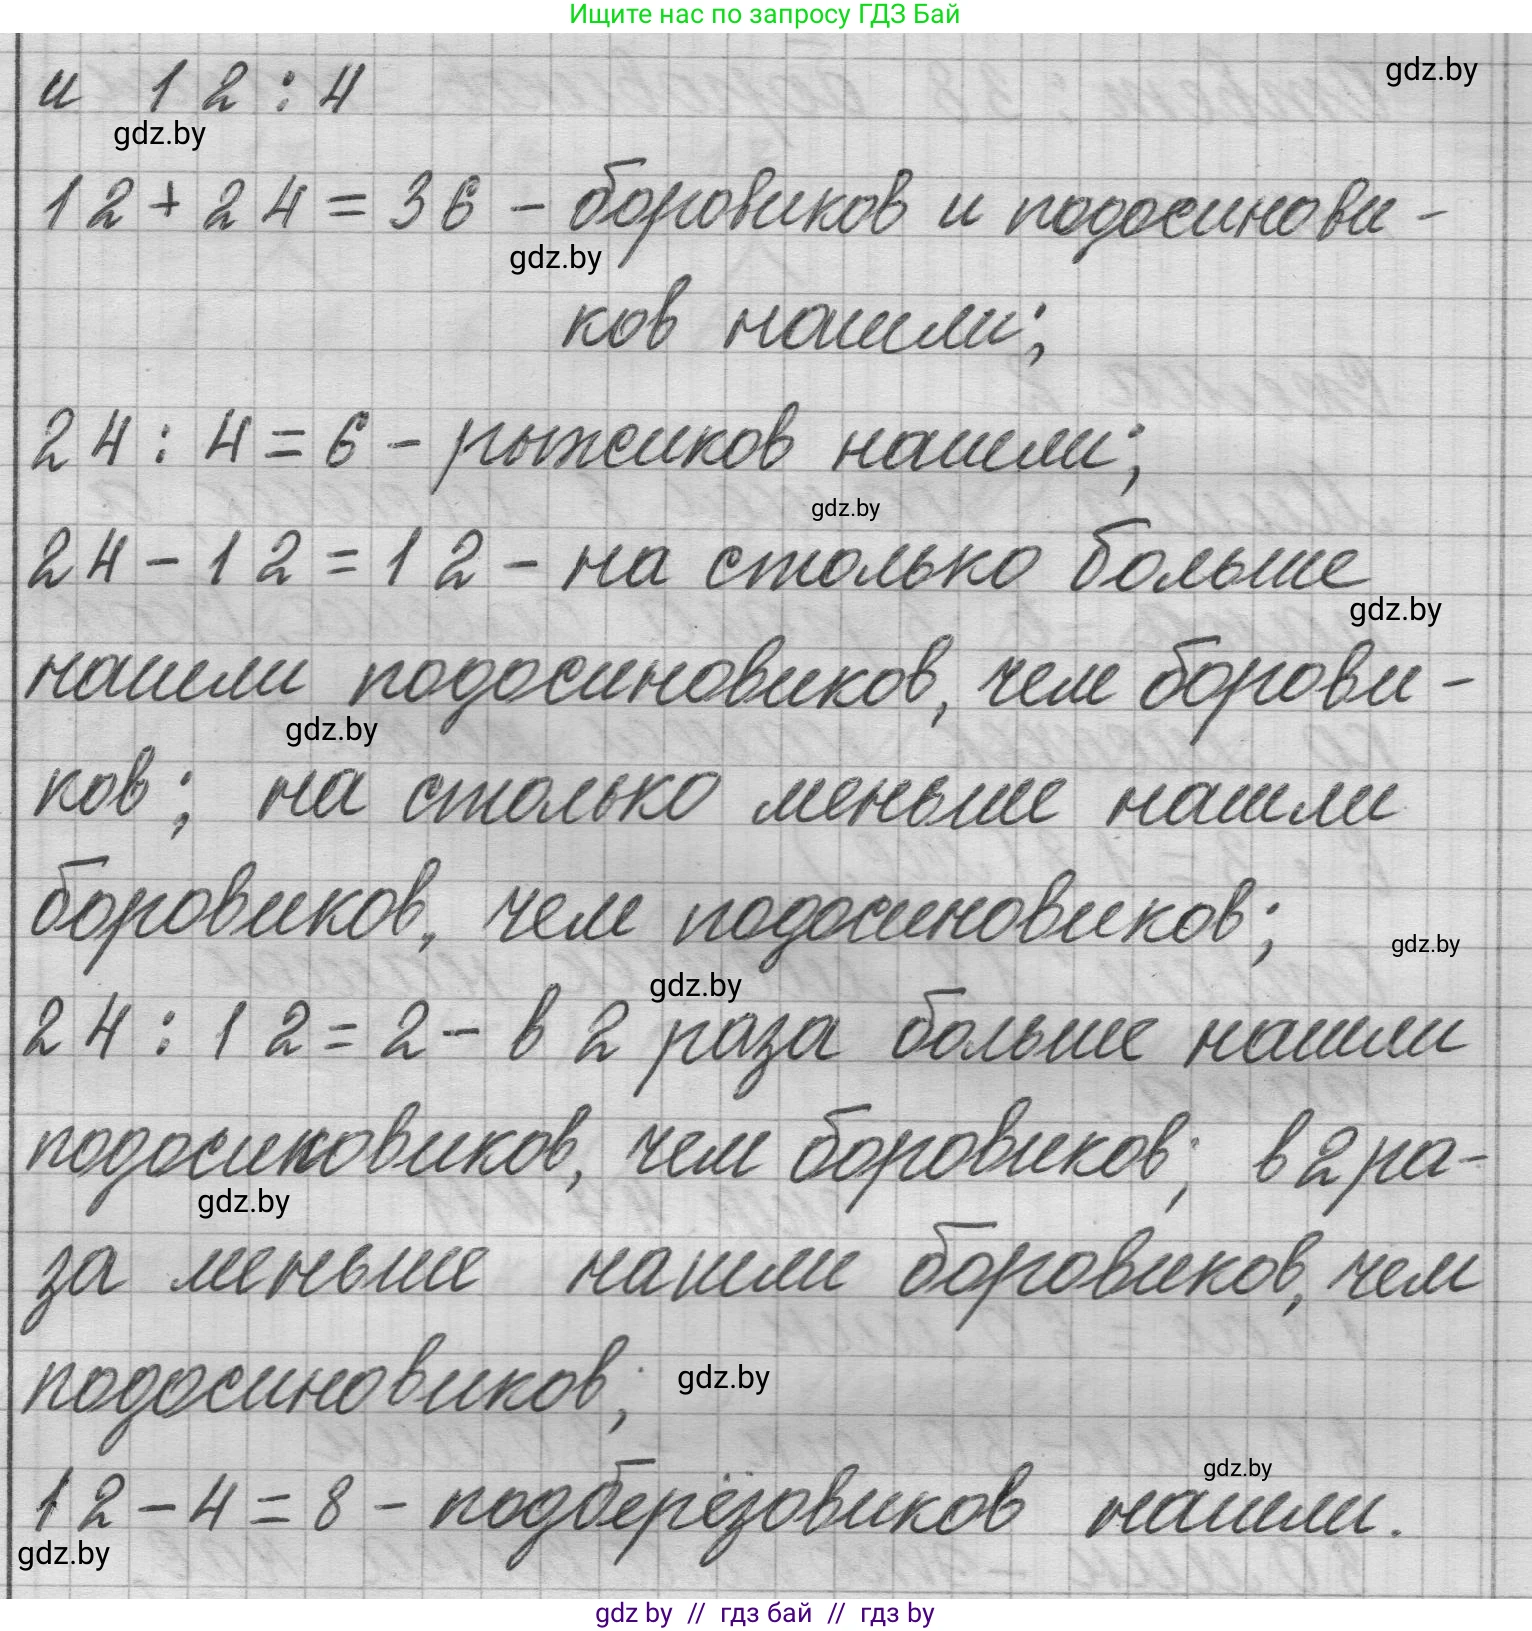 Ищите нас по запросу ГДЗ Бай
и 12 : 4
gdz.by
gdz.by
12 + 24 = 36 - боровиков и подосинови-
gdz.by
ков нашли;
24 : 4 = 6 - рыжиков нашли;
gdz.by
24 - 12 = 12 - на столько больше
gdz.by
нашли подосиновиков, чем борови-
gdz.by
ков; на столько меньше нашли
боровиков, чем подосиновиков;
gdz.by
gdz.by
24 : 12 = 2 - в 2 раза больше нашли
подосиновиков, чем боровиков; в 2 ра-
gdz.by
за меньше нашли боровиков, чем
подосиновиков;
gdz.by
gdz.by
12 - 4 = 8 - подберёзовиков нашли.
gdz.by
gdz by // гдз бай // гдз by